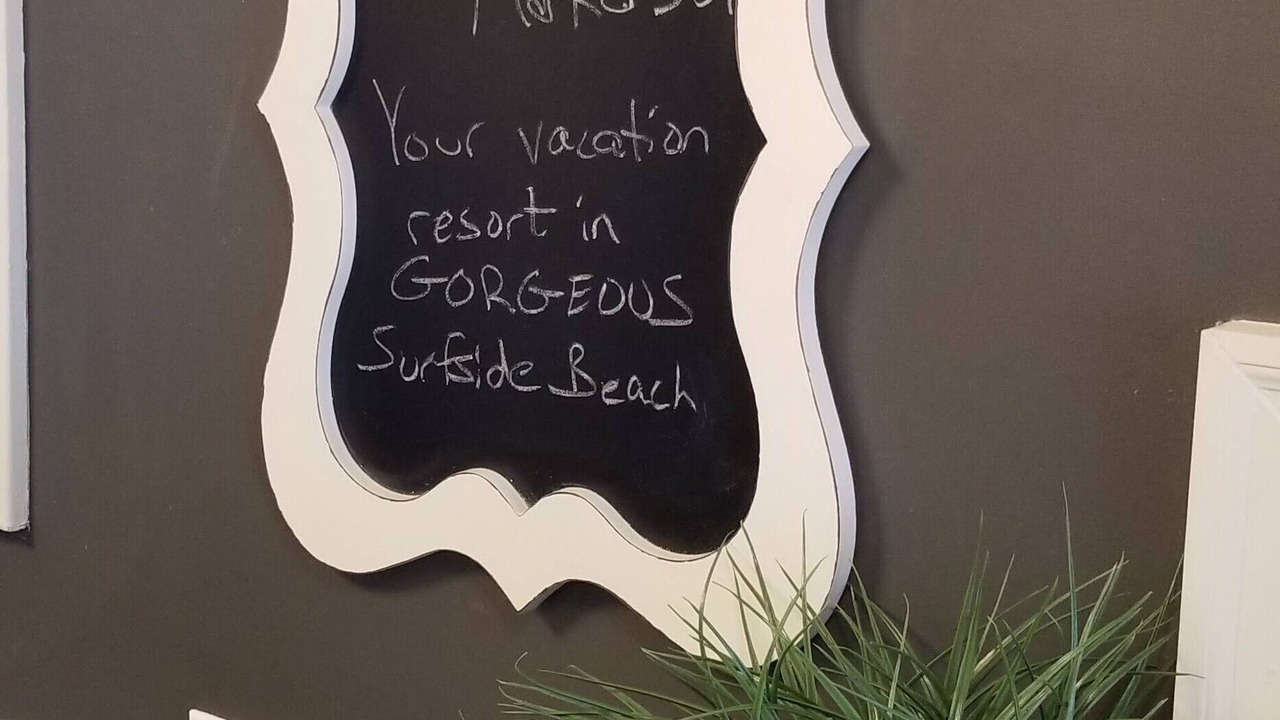 Your vacation
resort in
GORGEOUS
Surfside Beach